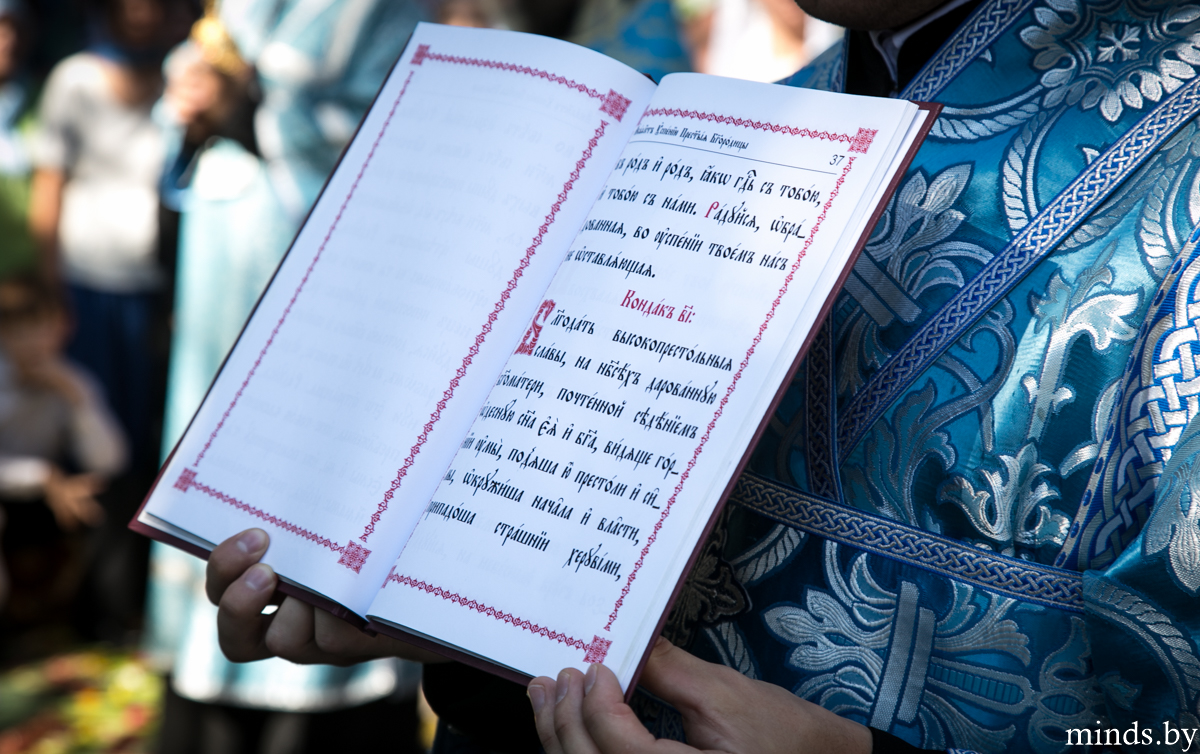 Ѹ҆спе́нїи Прест҃ы́ѧ Бг҃оро́дицы
37
ро́дъ и҆ ро́дъ, ꙗ҆́кѡ гдⷭ҇ь съ тобо́ю,
тобо́ю съ на́ми. Ра́дꙋйсѧ, ѡ҆бра-
дованнаѧ, во ᲂу҆спе́нїи твое́мъ на́съ
не ѡ҆ставлѧ́ющаѧ.
Конда́къ в҃і:
Бл҃года́ть высокопресто́льныѧ
сла́вы, на нб҃сѣ́хъ дарова́ннꙋю
бг҃ома́тери, почте́нной сѣдѣ́нїемъ
сн҃а є҆ѧ̀ и҆ бг҃а, ви́дѧще го́р-
ᲂу҆мы̀, подѧ́ша ю҆̀ престо́ли и҆ си̑-
ѡ҆крꙋжи́ша нача̑ла и҆ вла̑сти,
припадо́ша стра́шнїи херꙋві́ми,
minds.by